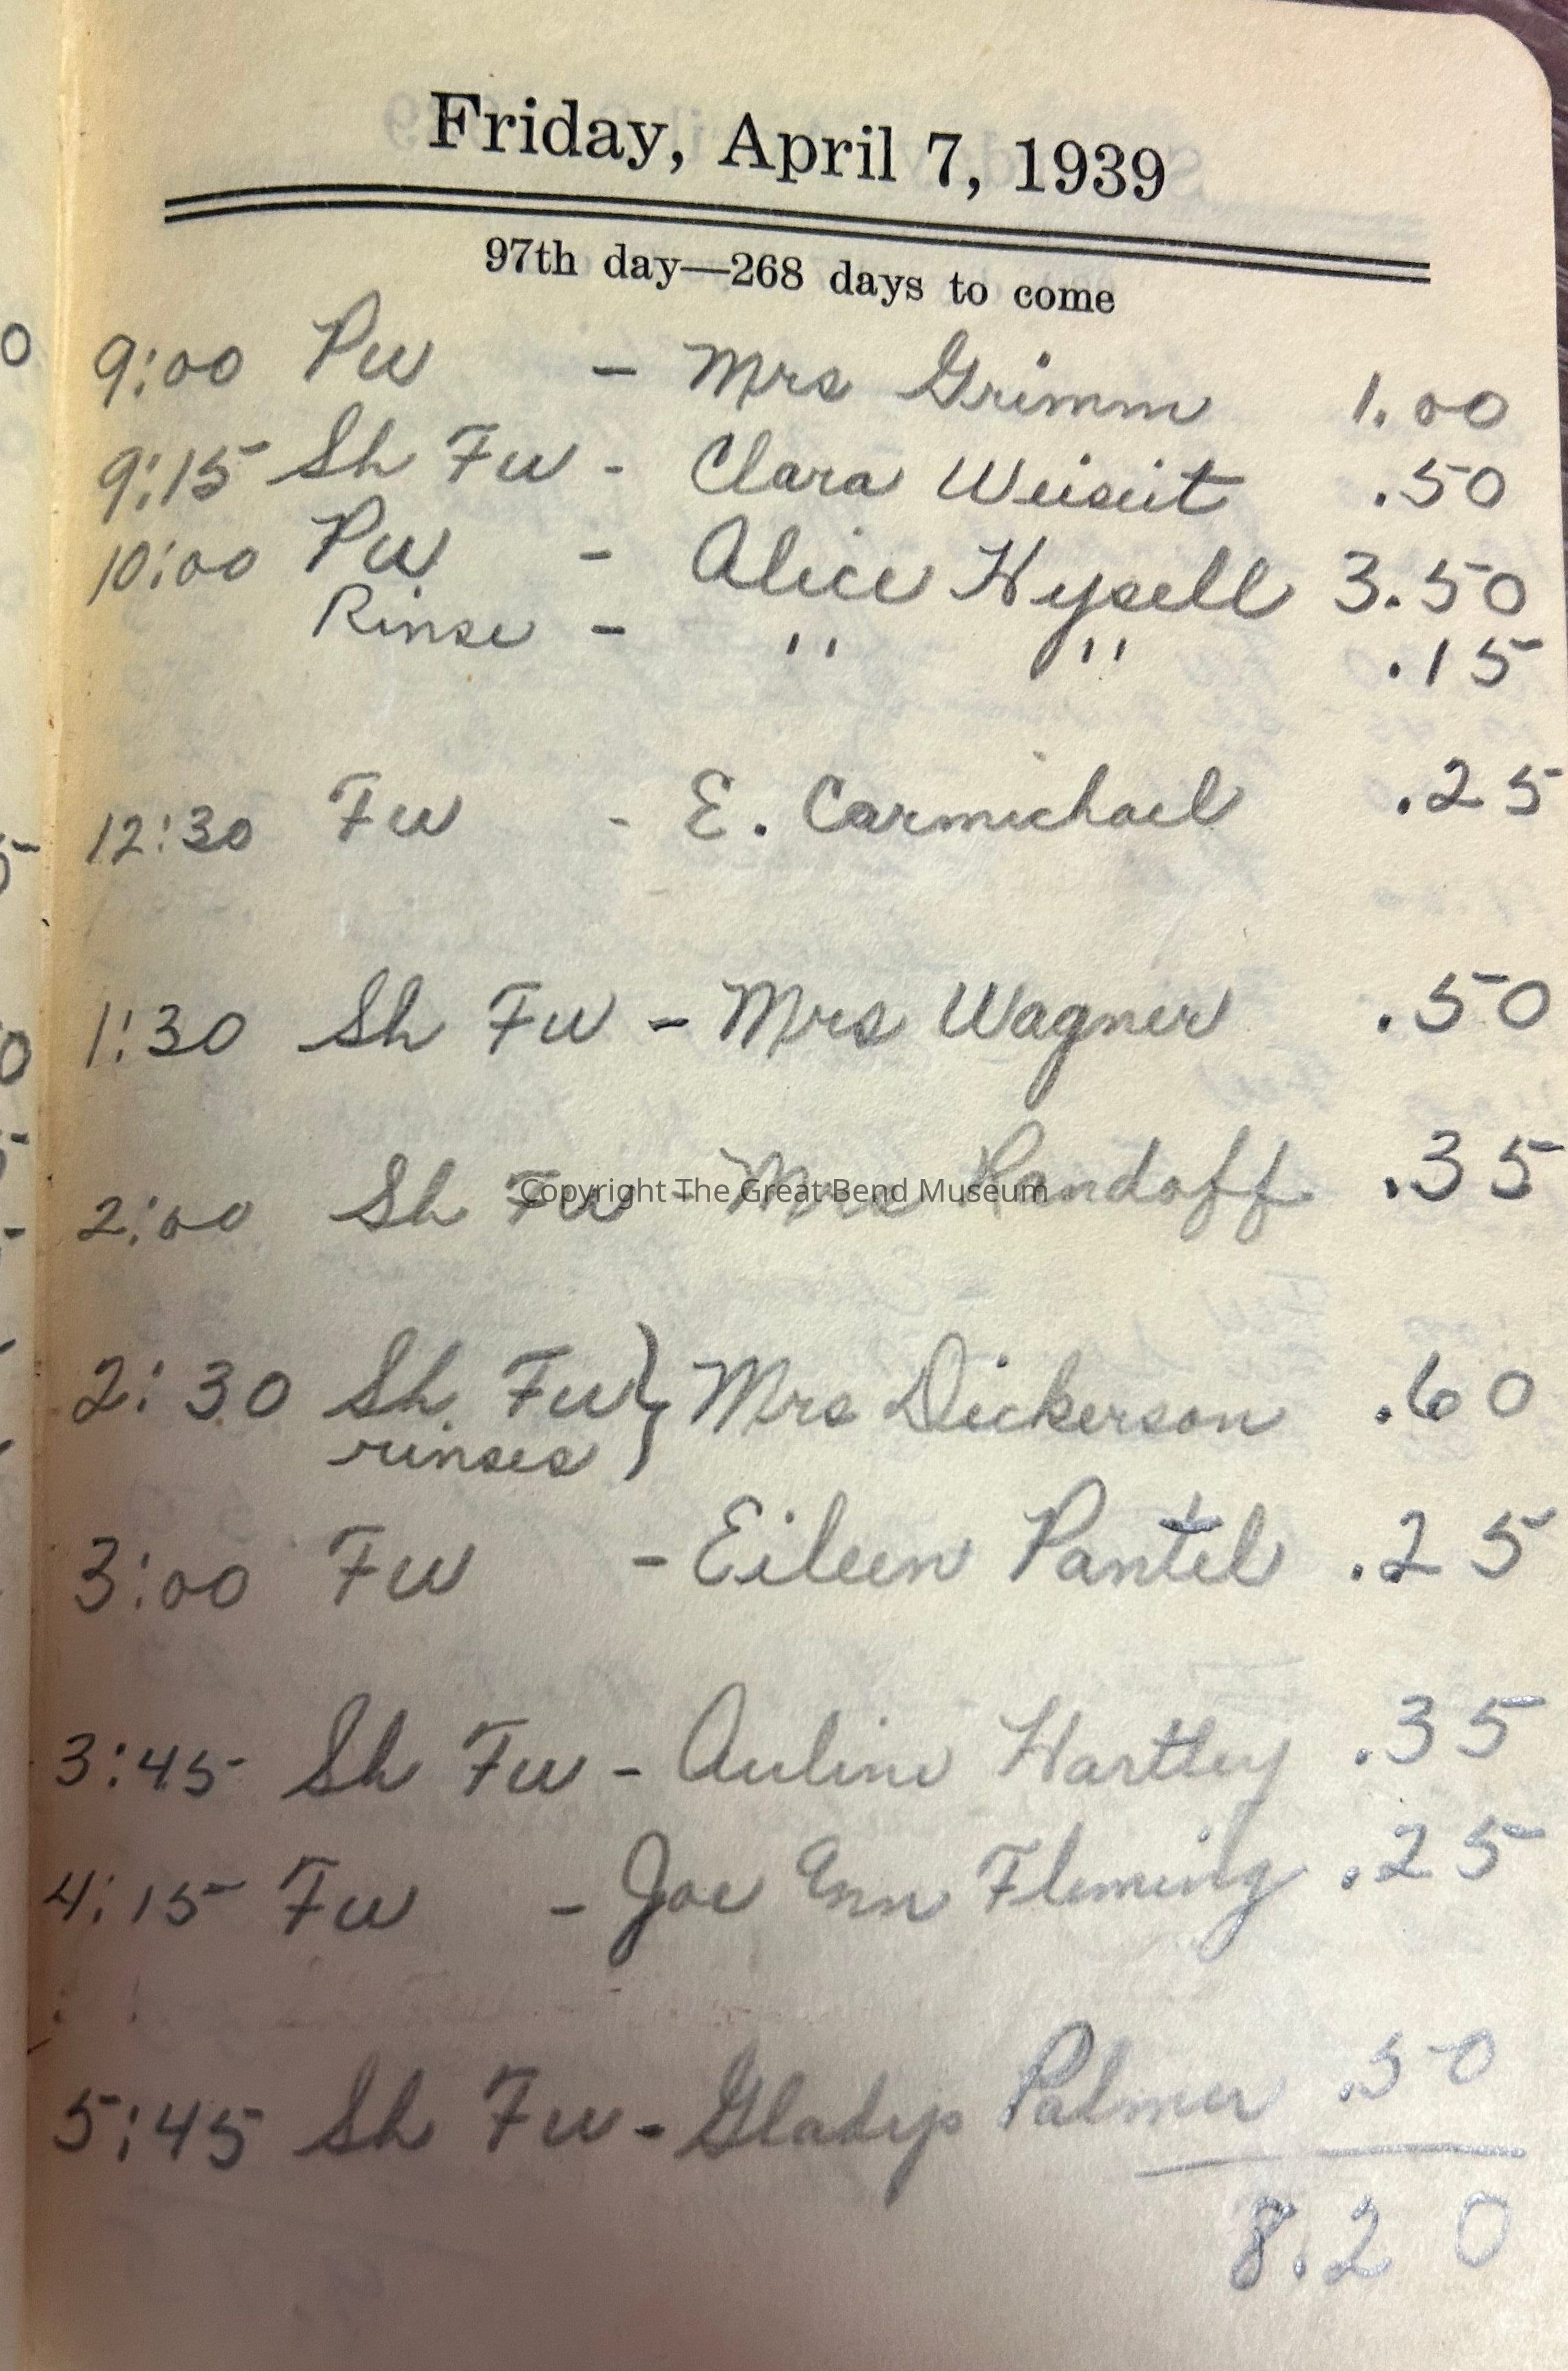 Friday, April 7, 1939
97th day—268 days to come
9:00 Pw - Mrs Grimm 1.00
9:15 Sh Fw - Clara .50
10:00 Pw - Alice Hysell 3.50
Rinse - " " .15
12:30 Fw - E. Carmichael .25
1:30 Sh Fw - Mrs Wagner .50
2:00 Sh Fw - Mrs Randoff .35
Copyright The Great Bend Museum
2:30 Sh. Fw } Mrs Dickerson .60
rinses
3:00 Fw - Eileen Pantel .25
3:45 Sh Fw - Auline Hartley .35
4:15 Fw - Joe Ann Fleming .25
5:45 Sh Fw - Gladys Palmer .50
8.20